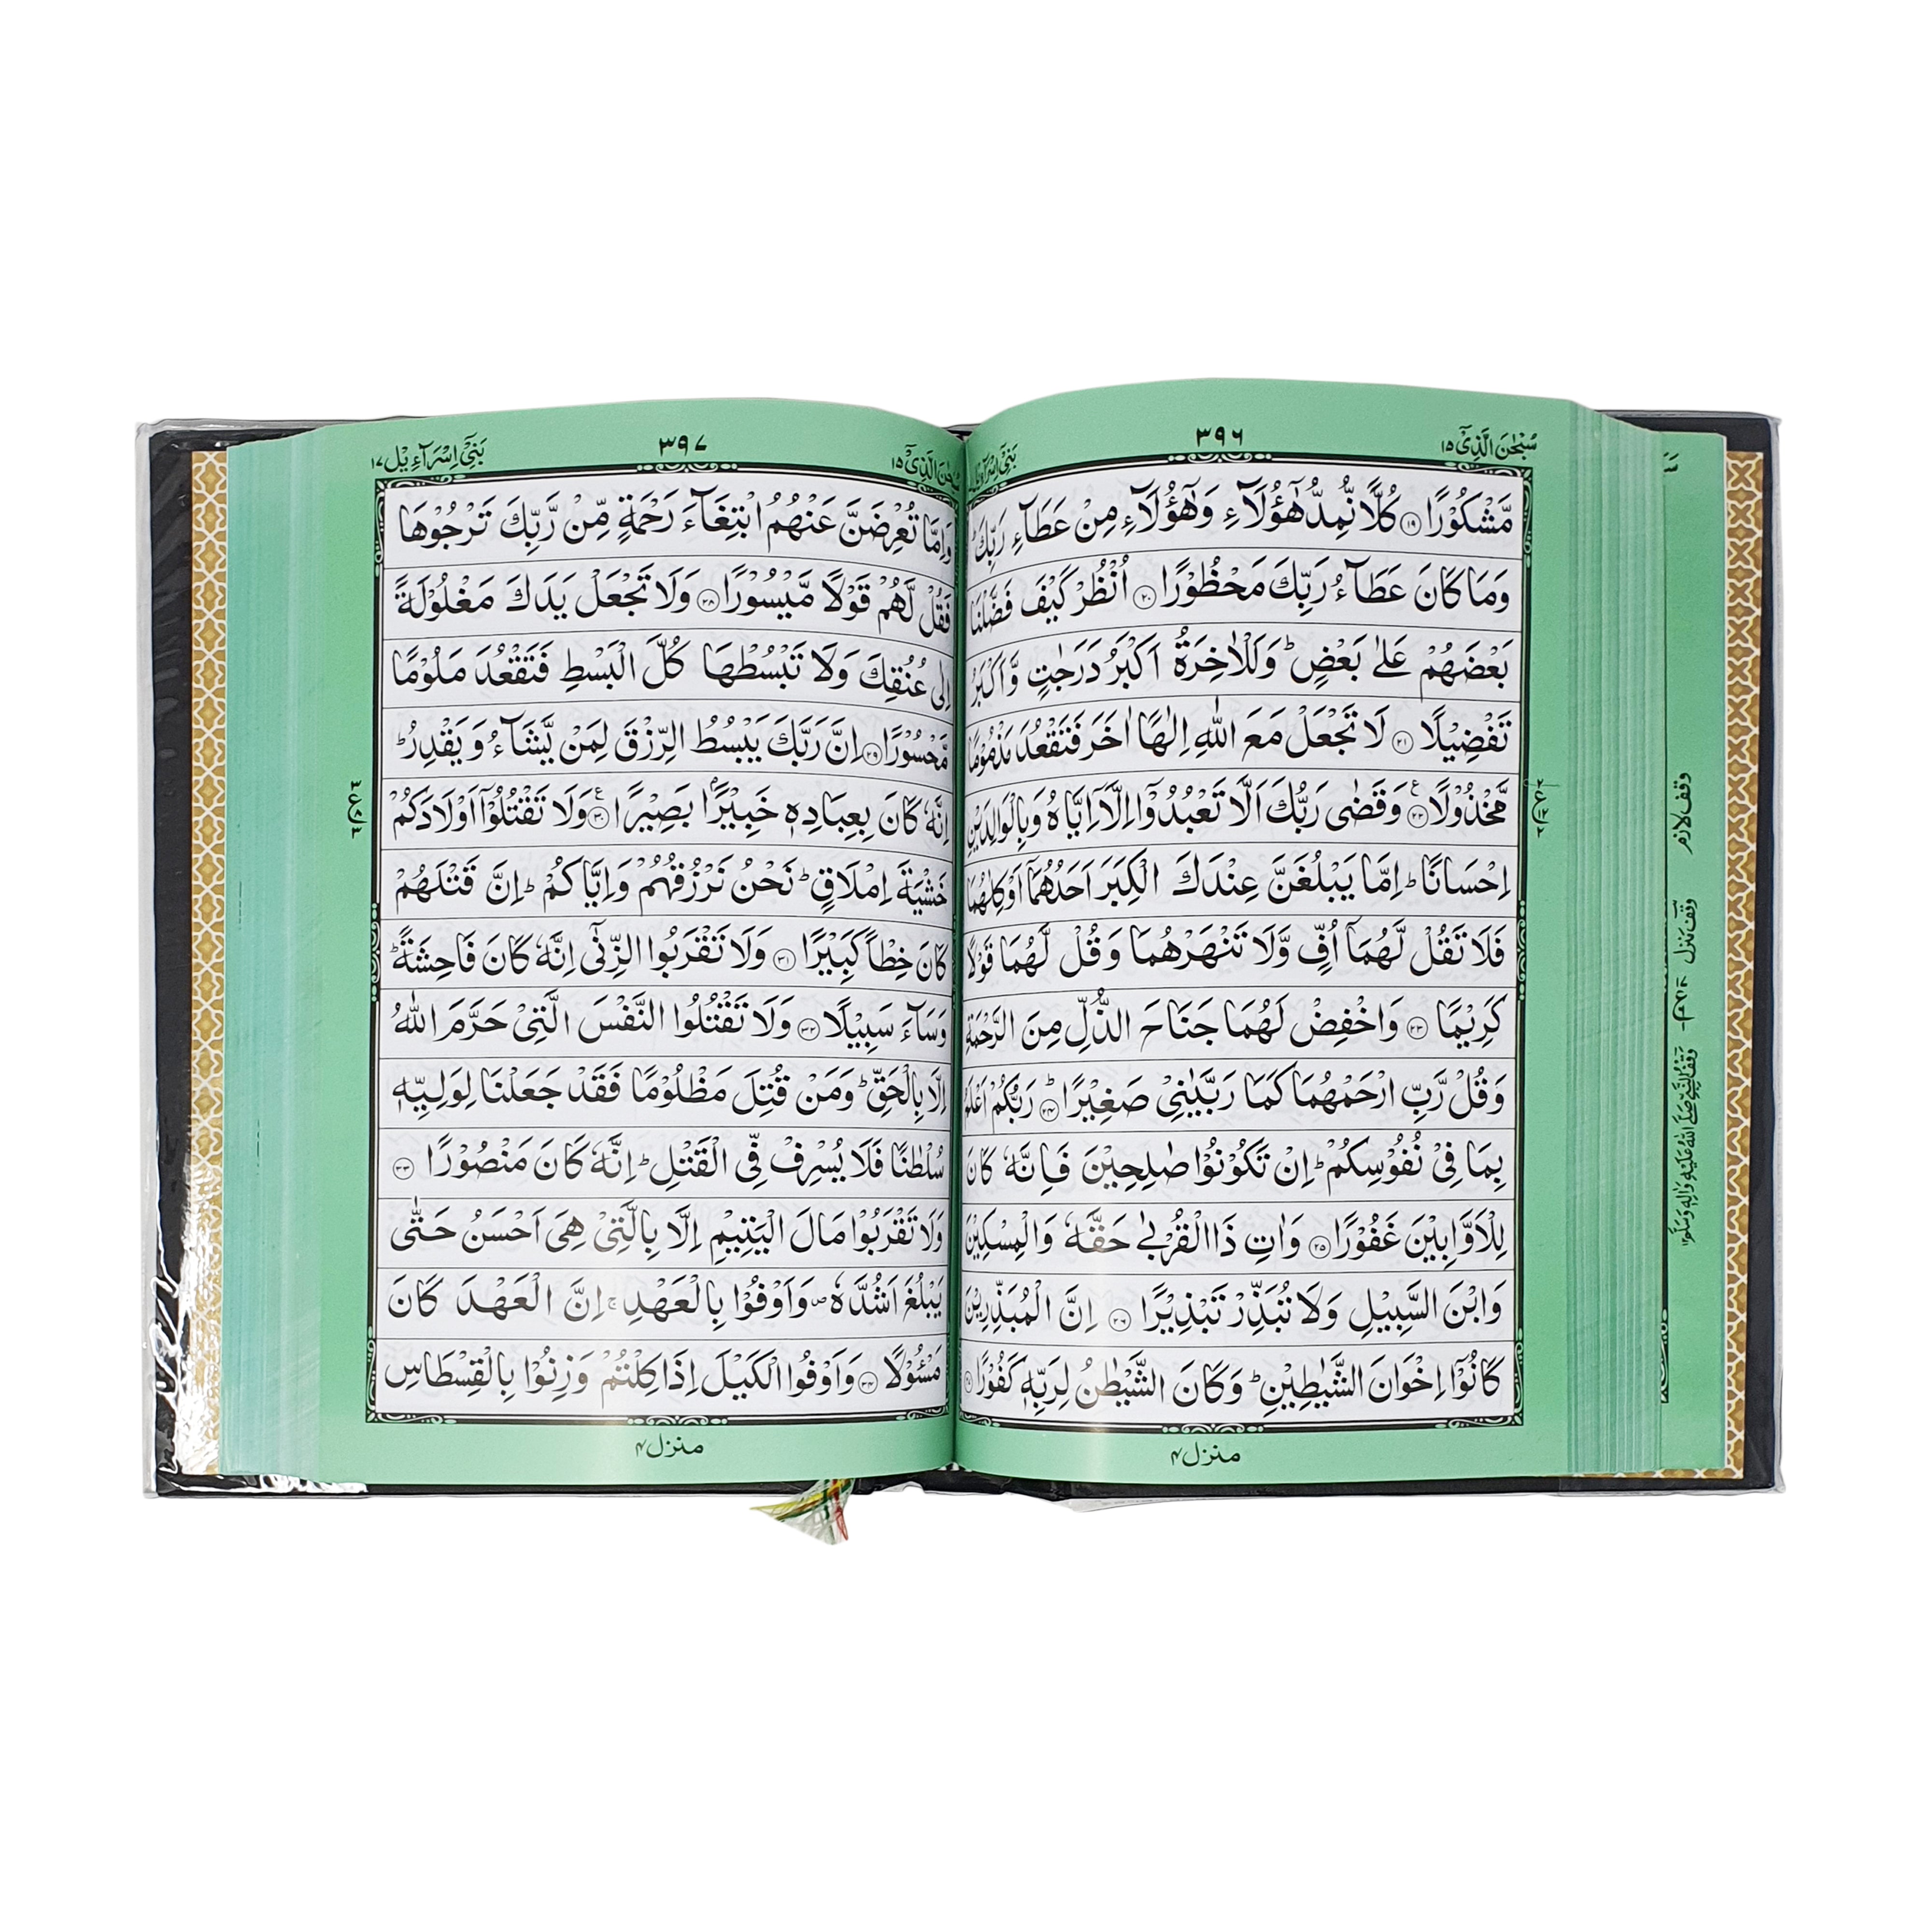 سُبْحٰنَ الَّذِیْۤ ۱۵
۳۹۶
بَنِیْۤ اِسْرَآءِیْل
مَّشْكُوْرًا ﴿۱۹﴾ كُلًّا نُّمِدُّ هٰۤؤُلَآءِ وَهٰۤؤُلَآءِ مِنْ عَطَآءِ رَبِّكَ ؕ
وَمَا كَانَ عَطَآءُ رَبِّكَ مَحْظُوْرًا ﴿۲۰﴾ اُنْظُرْ كَيْفَ فَضَّلْنَا
بَعْضَهُمْ عَلٰی بَعْضٍ ؕ وَلَلْاٰخِرَةُ اَكْبَرُ دَرَجٰتٍ وَّاَكْبَرُ
تَفْضِيْلًا ﴿۲۱﴾ لَا تَجْعَلْ مَعَ اللّٰهِ اِلٰهًا اٰخَرَ فَتَقْعُدَ مَذْمُوْمًا
مَّخْذُوْلًا ﴿۲۲﴾ ع وَقَضٰی رَبُّكَ اَلَّا تَعْبُدُوْۤا اِلَّاۤ اِيَّاهُ وَبِالْوَالِدَيْنِ
اِحْسَانًا ؕ اِمَّا يَبْلُغَنَّ عِنْدَكَ الْكِبَرَ اَحَدُهُمَاۤ اَوْ كِلٰهُمَا
فَلَا تَقُلْ لَّهُمَاۤ اُفٍّ وَّلَا تَنْهَرْهُمَا وَقُلْ لَّهُمَا قَوْلًا
كَرِيْمًا ﴿۲۳﴾ وَاخْفِضْ لَهُمَا جَنَاحَ الذُّلِّ مِنَ الرَّحْمَةِ
وَقُلْ رَّبِّ ارْحَمْهُمَا كَمَا رَبَّيٰنِیْ صَغِيْرًا ﴿۲۴﴾ ؕ رَبُّكُمْ اَعْلَمُ
بِمَا فِیْ نُفُوْسِكُمْ ؕ اِنْ تَكُوْنُوْا صٰلِحِيْنَ فَاِنَّهٗ كَانَ
لِلْاَوَّابِيْنَ غَفُوْرًا ﴿۲۵﴾ وَاٰتِ ذَا الْقُرْبٰی حَقَّهٗ وَالْمِسْكِيْنَ
وَابْنَ السَّبِيْلِ وَلَا تُبَذِّرْ تَبْذِيْرًا ﴿۲۶﴾ اِنَّ الْمُبَذِّرِيْنَ
كَانُوْۤا اِخْوَانَ الشَّيٰطِيْنِ ؕ وَكَانَ الشَّيْطٰنُ لِرَبِّهٖ كَفُوْرًا
منزل ۴
سُبْحٰنَ الَّذِیْۤ ۱۵
۳۹۷
بَنِیْۤ اِسْرَآءِیْل ۱۷
وَاِمَّا تُعْرِضَنَّ عَنْهُمُ ابْتِغَآءَ رَحْمَةٍ مِّنْ رَّبِّكَ تَرْجُوْهَا
فَقُلْ لَّهُمْ قَوْلًا مَّيْسُوْرًا ﴿۲۸﴾ وَلَا تَجْعَلْ يَدَكَ مَغْلُوْلَةً
اِلٰی عُنُقِكَ وَلَا تَبْسُطْهَا كُلَّ الْبَسْطِ فَتَقْعُدَ مَلُوْمًا
مَّحْسُوْرًا ﴿۲۹﴾ اِنَّ رَبَّكَ يَبْسُطُ الرِّزْقَ لِمَنْ يَّشَآءُ وَيَقْدِرُ ؕ
اِنَّهٗ كَانَ بِعِبَادِهٖ خَبِيْرًۢا بَصِيْرًا ﴿۳۰﴾ ع وَلَا تَقْتُلُوْۤا اَوْلَادَكُمْ
خَشْيَةَ اِمْلَاقٍ ؕ نَحْنُ نَرْزُقُهُمْ وَاِيَّاكُمْ ؕ اِنَّ قَتْلَهُمْ
كَانَ خِطْاً كَبِيْرًا ﴿۳۱﴾ وَلَا تَقْرَبُوا الزِّنٰۤی اِنَّهٗ كَانَ فَاحِشَةً ؕ
وَسَآءَ سَبِيْلًا ﴿۳۲﴾ وَلَا تَقْتُلُوا النَّفْسَ الَّتِیْ حَرَّمَ اللّٰهُ
اِلَّا بِالْحَقِّ ؕ وَمَنْ قُتِلَ مَظْلُوْمًا فَقَدْ جَعَلْنَا لِوَلِيِّهٖ
سُلْطٰنًا فَلَا يُسْرِفْ فِّی الْقَتْلِ ؕ اِنَّهٗ كَانَ مَنْصُوْرًا ﴿۳۳﴾
وَلَا تَقْرَبُوْا مَالَ الْيَتِيْمِ اِلَّا بِالَّتِیْ هِیَ اَحْسَنُ حَتّٰی
يَبْلُغَ اَشُدَّهٗ ۪ وَاَوْفُوْا بِالْعَهْدِ ۚ اِنَّ الْعَهْدَ كَانَ
مَسْـُٔوْلًا ﴿۳۴﴾ وَاَوْفُوا الْكَيْلَ اِذَا كِلْتُمْ وَزِنُوْا بِالْقِسْطَاسِ
منزل ۴
وقف لازم
وقف منزل
وقف النبی صَلَّی اللّٰهُ عَلَيْهِ وَاٰلِهٖ وَسَلَّمَ